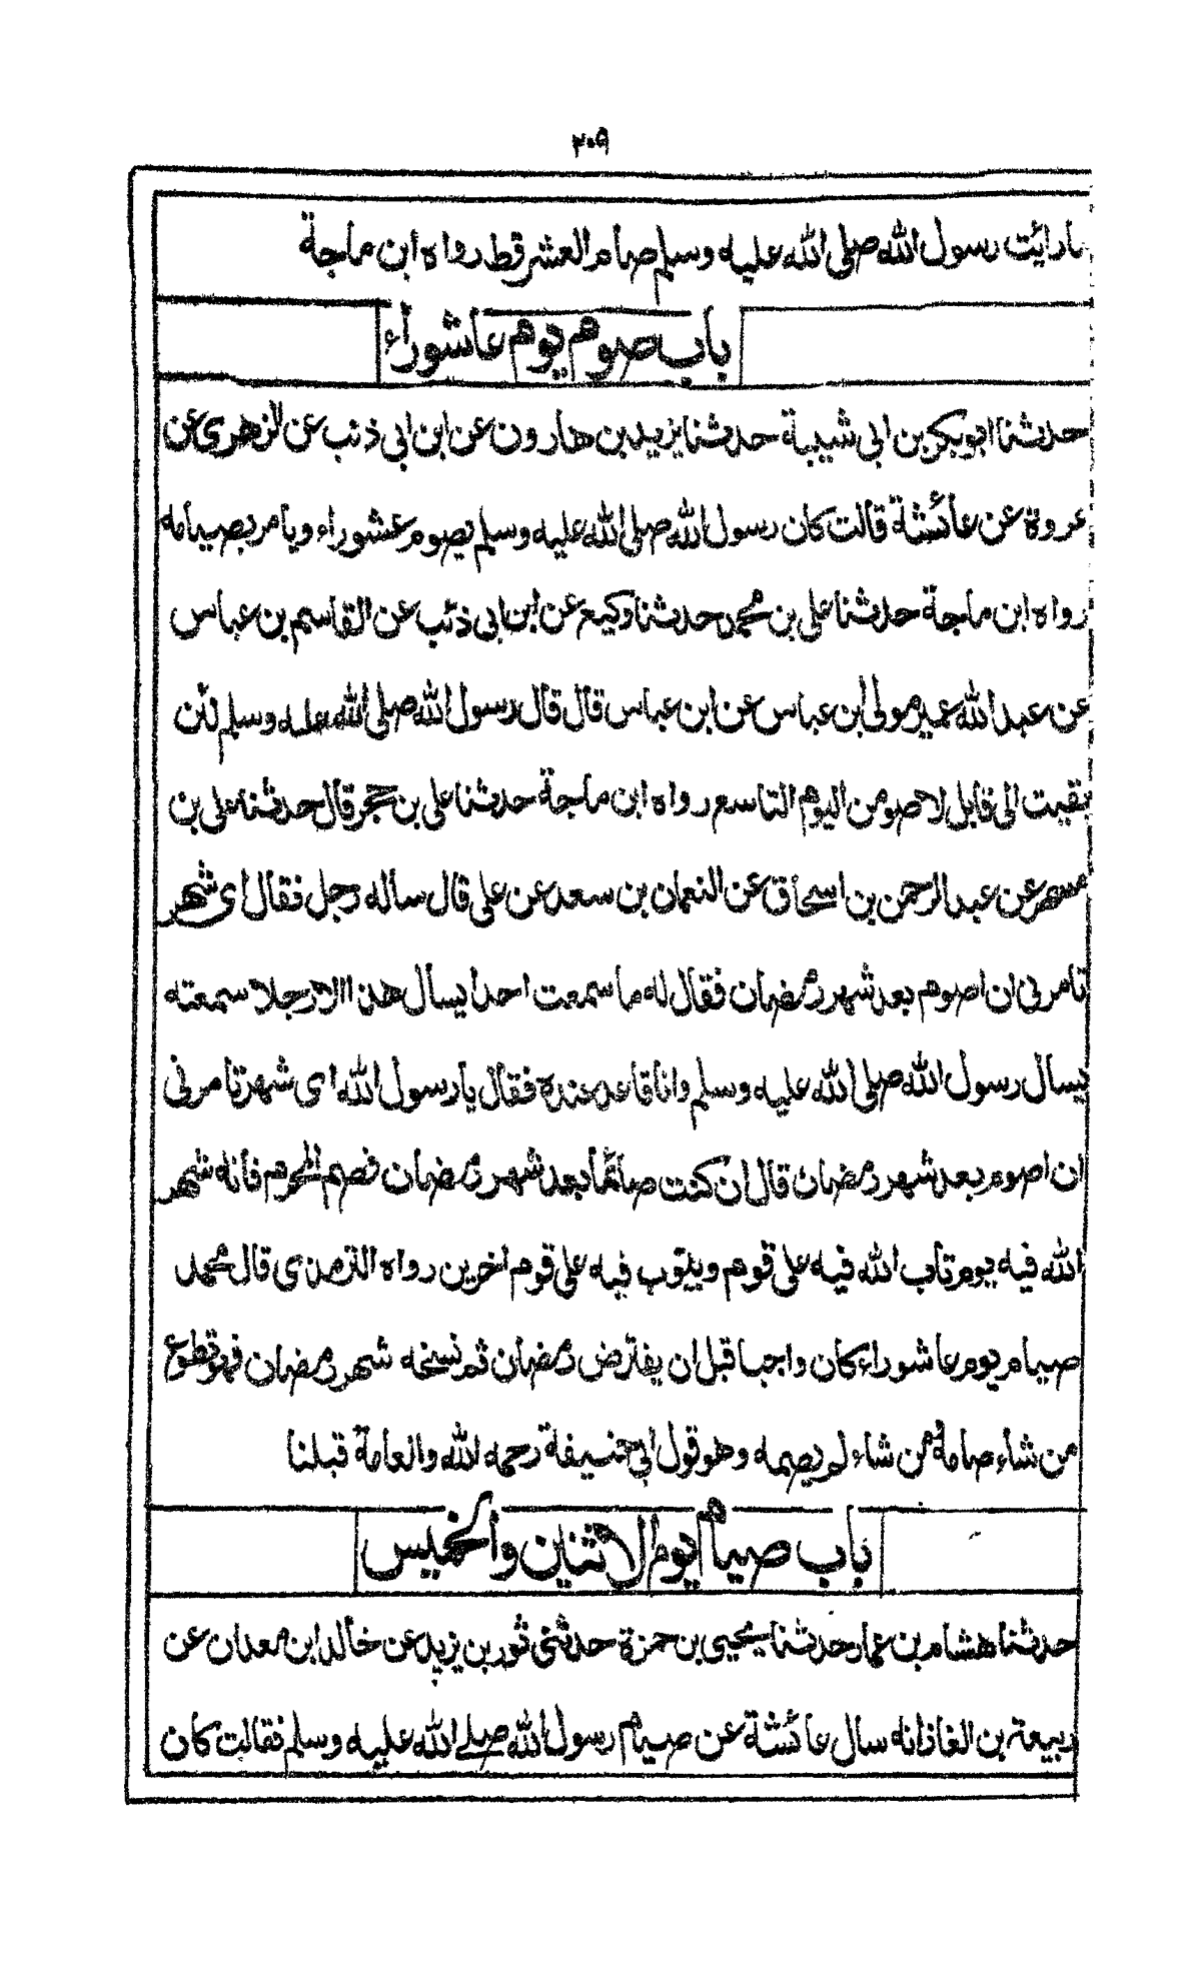 ٢٠٩
مارائت رسول الله صلى الله عليه وسلم صام العشر قط رواه ابن ماجة
باب صوم يوم عاشوراء
حدثنا ابوبكر بن ابي شيبة حدثنا يزيد بن هارون عن ابن ابي ذئب عن الزهري عن
عروة عن عائشة قالت كان رسول الله صلى الله عليه وسلم يصوم عشوراء ويامر بصيامه
رواه ابن ماجة حدثنا على بن محمد حدثنا وكيع عن ابن ابى ذئب عن القاسم بن عباس
عن عبد الله عمير مولى ابن عباس عن ابن عباس قال قال رسول الله صلى الله عليه وسلم لئن
بقيت الى قابل لاصومن اليوم التاسع رواه ابن ماجة حدثنا على بن حجر قال حدثنا على بن
مسهر عن عبد الرحمن بن اسحاق عن النعمان بن سعد عن على قال ساله رجل فقال اى شهر
تامرنى ان اصوم بعد شهر رمضان فقال له ما سمعت احدا يسال هذا الا رجلا سمعته
يسال رسول الله صلى الله عليه وسلم وانا قاعد عنده فقال يا رسول الله اى شهر تامرنى
ان اصوم بعد شهر رمضان قال ان كنت صائما بعد شهر رمضان فصم المحرم فانه شهر
الله فيه يوم تاب الله فيه على قوم ويتوب فيه على قوم اخرين رواه الترمذى قال محمد
صيام يوم عاشوراء كان واجبا قبل ان يفترض رمضان ثم نسخه شهر رمضان فهو تطوع
من شاء صامه ومن شاء لم يصمه وهو قول ابى حنيفة رحمه الله والعامة قبلنا
باب صيام يوم الاثنين والخميس
حدثنا هشام بن عمار حدثنا يحيى بن حمزة حدثنى ثور بن يزيد عن خالد ابن معدان عن
ربيعة بن الغاز انه سال عائشة عن صيام رسول الله صلے الله عليه وسلم فقالت كان